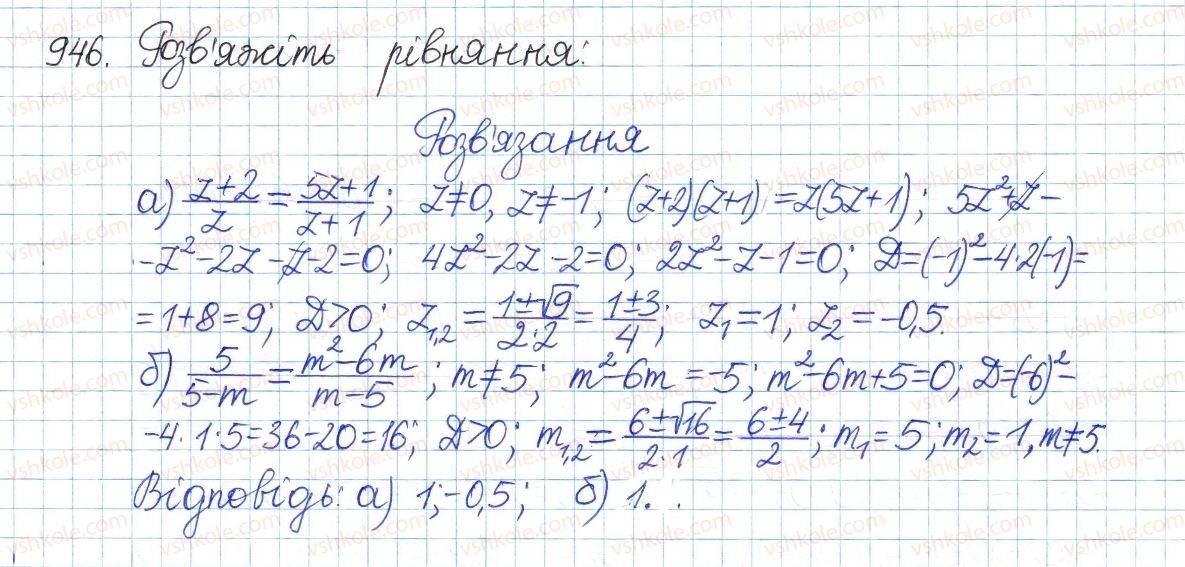 946. Розв'яжіть рівняння:
Розв'язання
а) (z+2)/z = (5z+1)/(z+1); z≠0, z≠-1; (z+2)(z+1) = z(5z+1); 5z²+z-
-z²-2z-z-2=0; 4z²-2z-2=0; 2z²-z-1=0; D=(-1)²-4·2(-1)=
=1+8=9; D>0; z₁,₂ = (1±√9)/(2·2) = (1±3)/4; z₁=1; z₂=-0,5.
б) 5/(5-m) = (m²-6m)/(m-5); m≠5; m²-6m=-5; m²-6m+5=0; D=(-6)²-
-4·1·5=36-20=16; D>0; m₁,₂ = (6±√16)/(2·1) = (6±4)/2; m₁=5; m₂=1, m≠5.
Відповідь: а) 1; -0,5; б) 1.